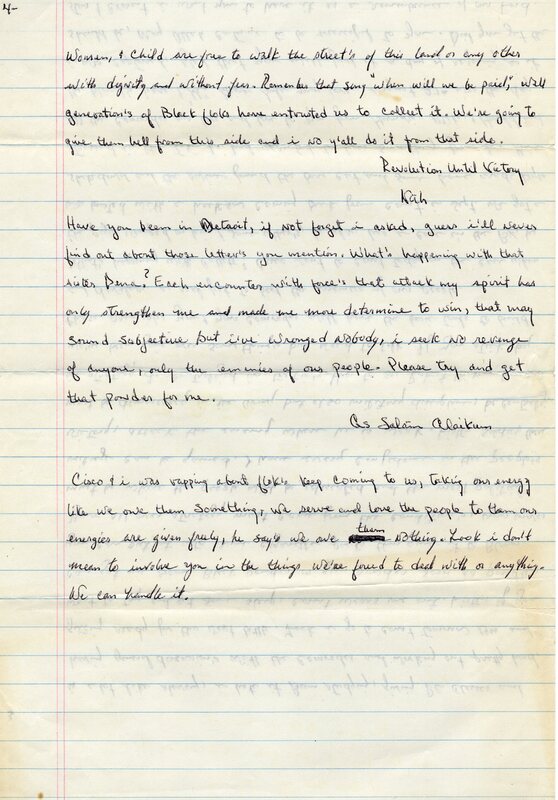 4-
Women, & child are free to walk the street's of this land or any other
with dignity and without fear. Remember that song "when will we be paid," well
generation's of Black floks have entrusted us to collect it. We're going to
give them hell from this side and i no y'all do it from that side.
Revolution Until Victory
Kuh
Have you been in Detroit, if not forget i asked, guess i'll never
find out about those letter's you mention. What's happening with that
sister Dena? Each encounter with force's that attack my spirit has
only strengthen me and made me more determine to win, that may
sound subjective but i've wronged nobody, i seek no revenge
of anyone, only the enemies of our people. Please try and get
that powder for me.
As Salām Alaikum
Cisco & i was rapping about flok's keep coming to us, taking our energy
like we owe them something, we serve and love the people to them our
energies are given freely, he say's we owe them nothing. Look i don't
mean to involve you in the things we're forced to deal with or anything.
We can handle it.